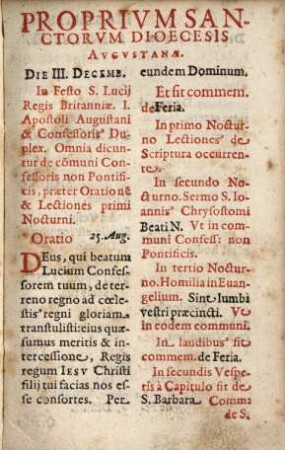 PROPRIVM SAN-
CTORVM DIOECESIS
AVGVSTANÆ.
DIE III. DECEMB.
In Festo S. Lucij
Regis Britanniæ. I.
Apostoli Augustani
& Confessoris Du-
plex. Omnia dicun-
tur de cõmuni Con-
fessoris non Pontifi-
cis, præter Orationẽ
& Lectiones primi
Nocturni.
Oratio 25. Aug.
DEus, qui beatum
Lucium Confes-
sorem tuum, de ter-
reno regno ad cœle-
stis regni gloriam
transtulisti: eius quæ-
sumus meritis & in-
tercessione, Regis
regum IESV Christi
filij tui facias nos es-
se consortes. Per
eundem Dominum.
Et fit commem.
de Feria.
In primo Noctur-
no Lectiones de
Scriptura occurren-
te.
In secundo No-
cturno. Sermo S. Io-
annis Chrysostomi
Beati N. Vt in com-
muni Confess: non
Pontificis.
In tertio Noctur-
no. Homilia in Euan-
gelium. Sint lumbi
vestri præcincti. Vt
in eodem communi.
In laudibus fit
commem. de Feria.
In secundis Vespe-
ris à Capitulo fit de
S. Barbara Comme
de S.